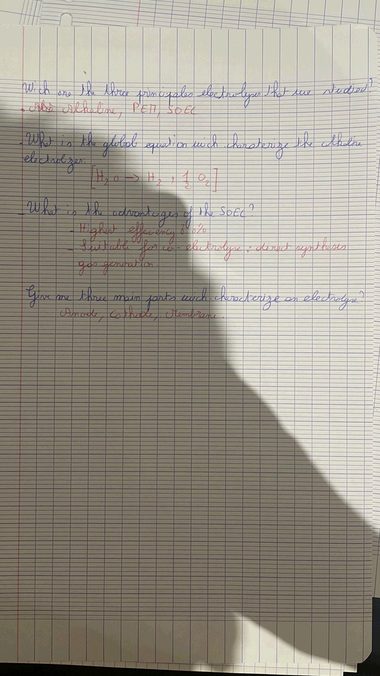 Wich are the three principales electrolyser that we studied?
- Alkaline, PEM, SOEC
- What is the global equation wich charaterize the Alkaline
electrolizer
[H2O -> H2 + 1/2 O2]
- What is the advantages of the SOEC?
- Highest efficiency %
- Suitable for co-electrolyse: direct syntheses
gas generation
Give me three main parts wich characterize an electrolyse?
Anode, Cathode, Membrane